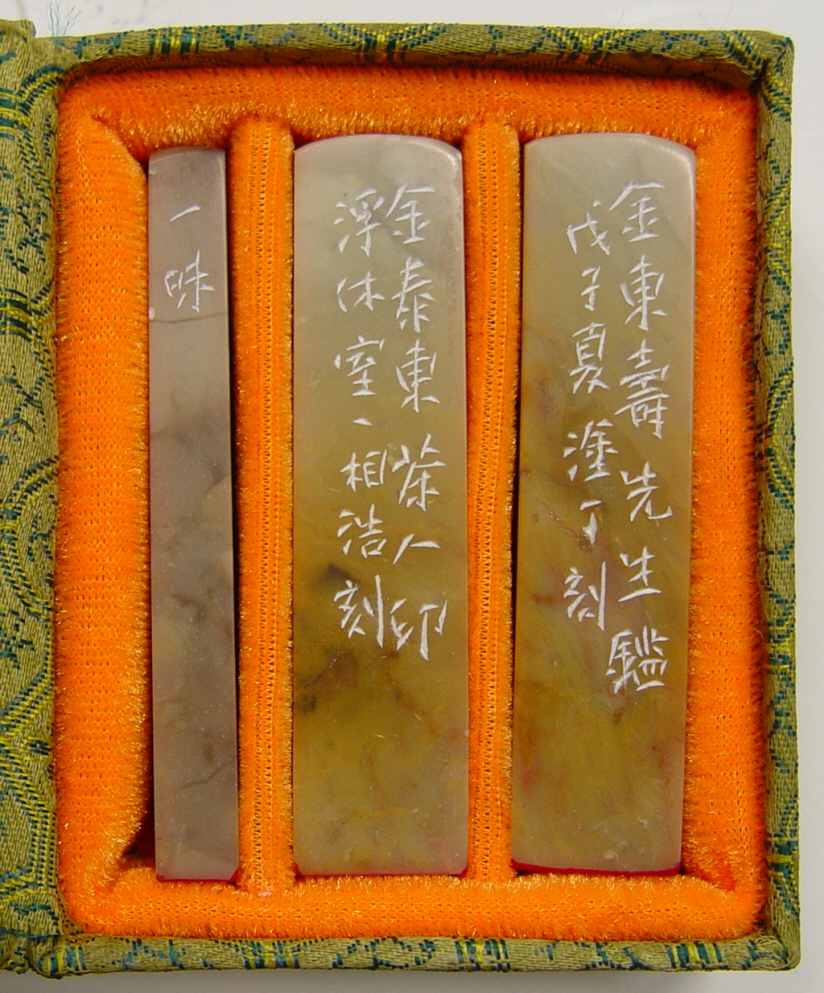 金東壽先生鑑
戊子夏塗丁刻
金泰東茶人印
浮休室、相浩刻
一味